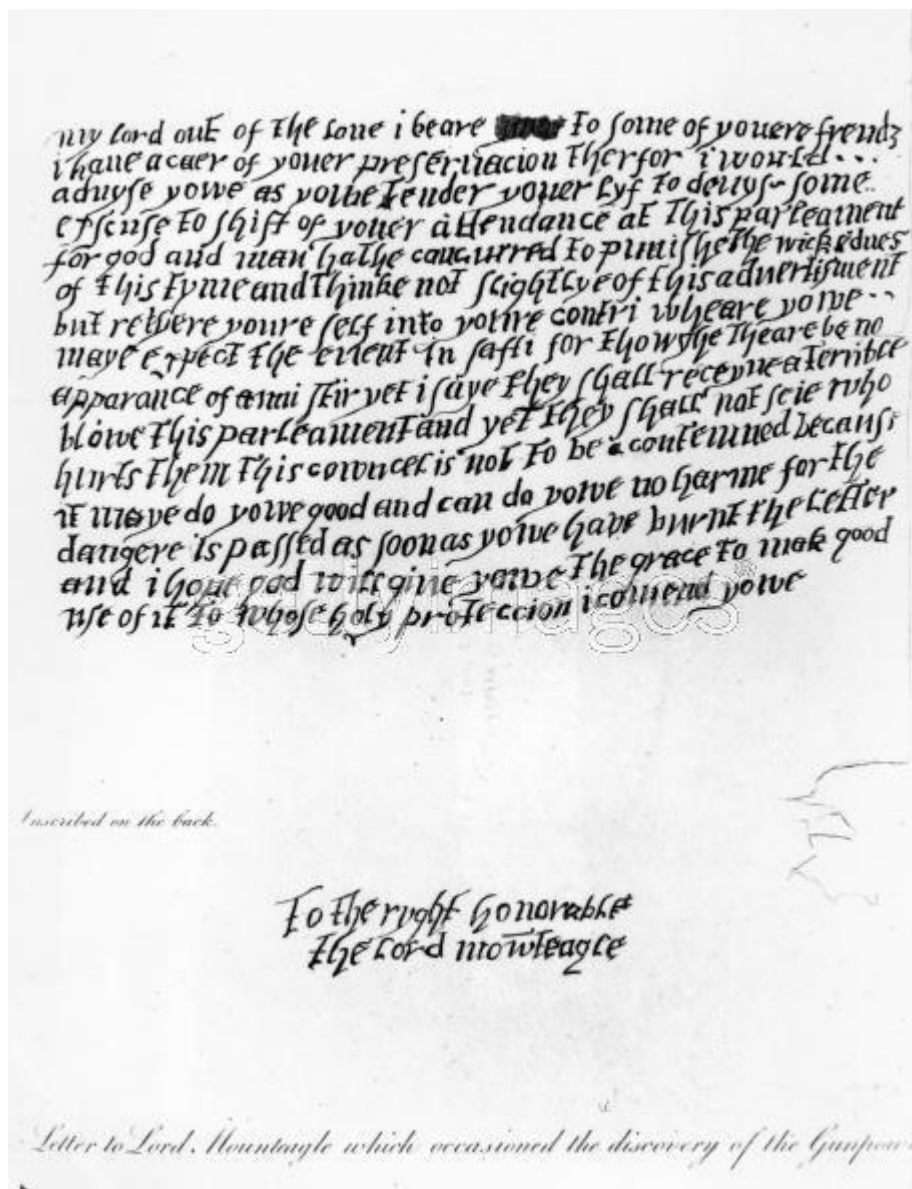 my lord out of the loue i beare to some of youere frends
i haue a caer of youer preseruacion therfor i would...
aduyse yowe as yowe tender youer lyf to deuys some..
exscuse to shift of youer attendance at this parleament
for god and man hathe concurred to punishe the wickednes
of this tyme and thinke not slightlye of this aduertisment
but retyere youre self into youre contri wheare yowe..
maye expect the euent in safti for thowghe theare be no
apparance of anni stir yet i saye they shall receyue a terrible
blowe this parleament and yet they shall not seie who
hurts them this cowncel is not to be a contemned because
it maye do yowe good and can do yowe no harme for the
dangere is passed as soon as yowe have burnt the letter
and i hope god will giue yowe the grace to mak good
use of it to whose holy proteccion i comend yowe
gettyimages
Inscribed on the back.
To the ryght honorable
the lord mowteagle
Letter to Lord Mounteagle which occasioned the discovery of the Gunpow